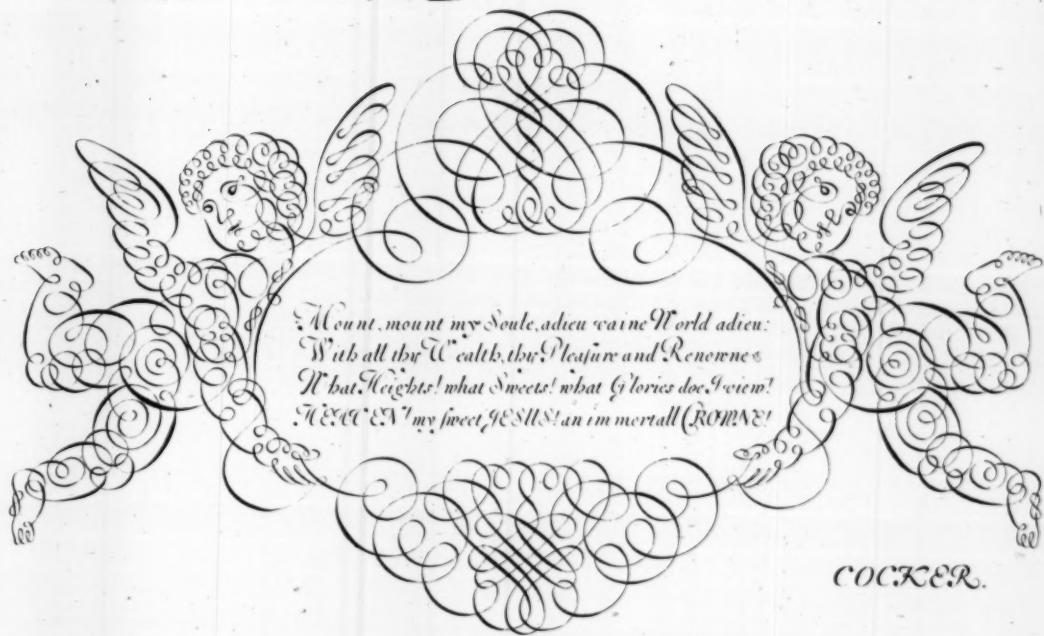 Mount, mount my Soule, adieu vaine World adieu:
With all thy Wealth, thy Pleasure and Renowne
What Heights! what Sweets! what Glories doe I view!
HEAVEN! my sweet JESUS! an immortall CROWNE!
COCKER.